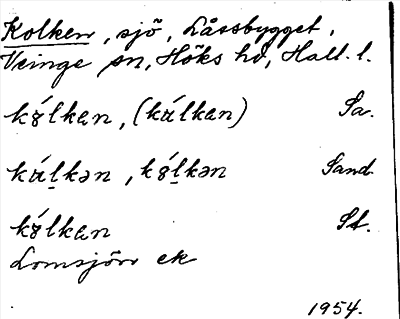 Kolken, sjö, Låssbygget,
Veinge sn, Höks hd, Hall. l.
kólkan, (kálkan) Sa.
káḻkən, kóḻkən Sand.
kólkan St.
Lomsjön ek
1954.